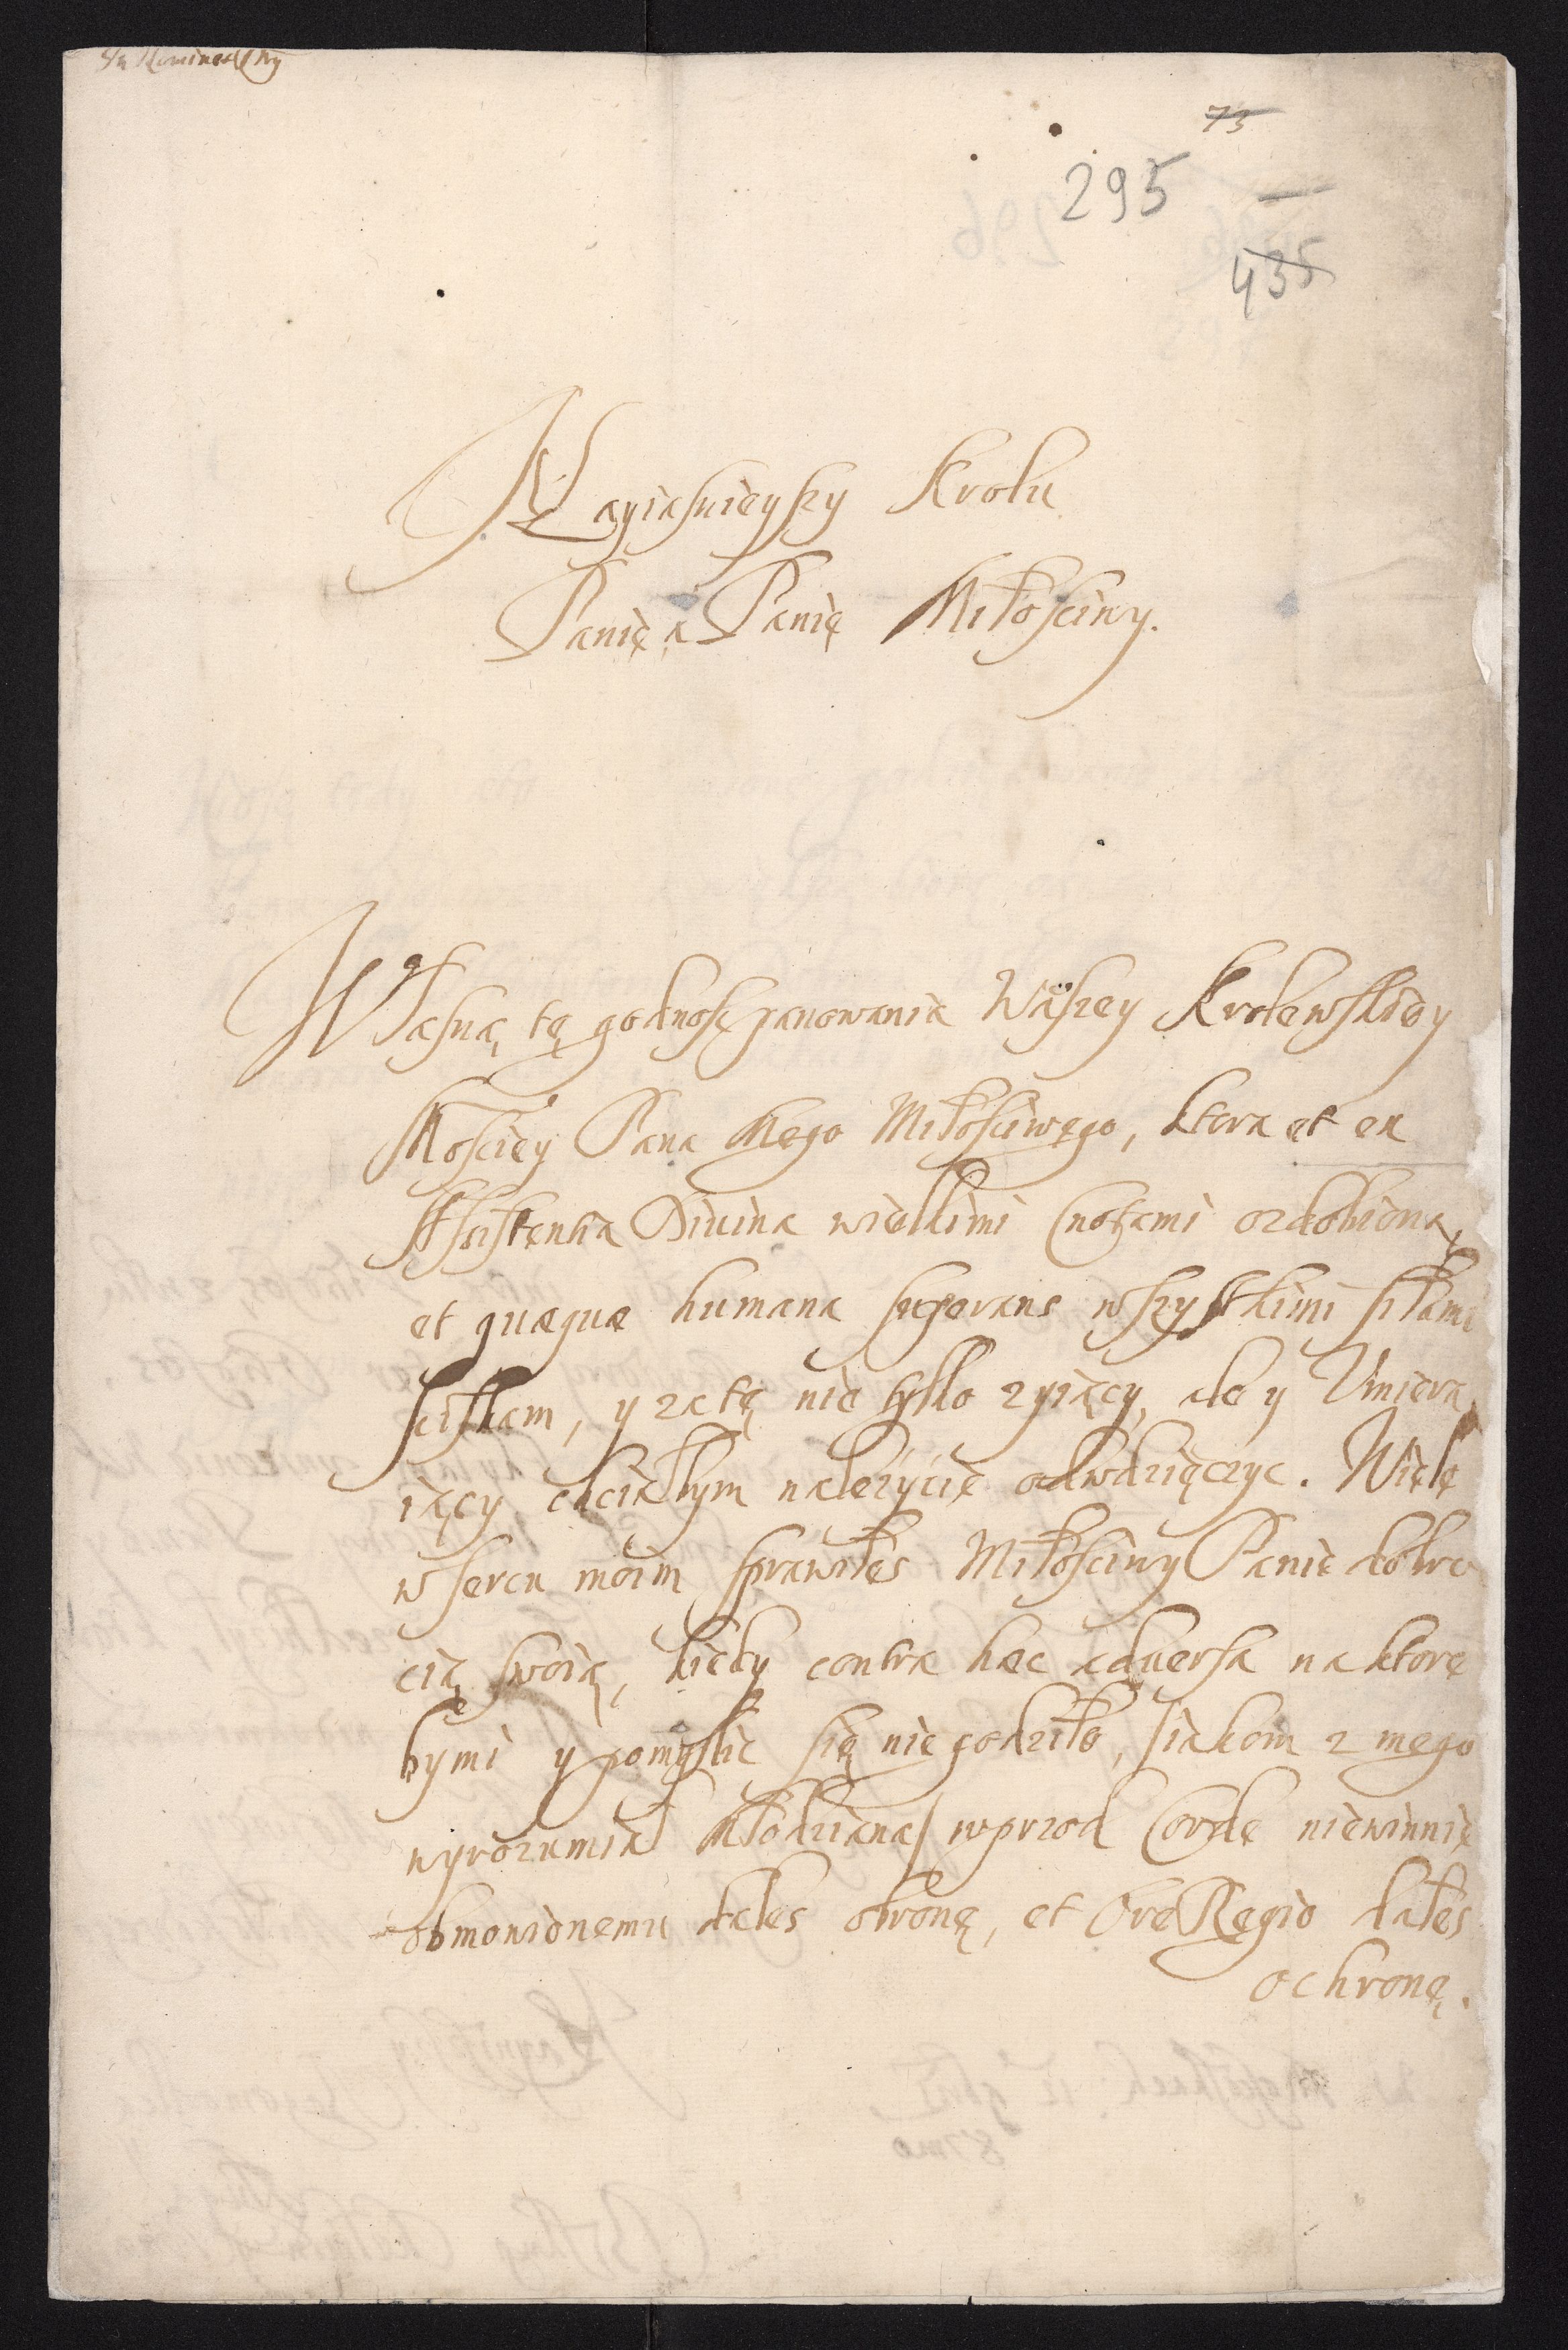 73
295
435
Nayiasnieyszy Krolu
Panie a Panie Miłosciwy.
Własną tę godnosc panowania Waszey Krolewskiey
Mosciey Pana Mego Miłosciwego, ktora et ex
Assistentia Diuina wielkimi Cnotami ozdobiona,
et quæque humana superans wszystkimi siłami
sciskam, y za tę nie tylko zyiący, ale y Vmiera
iący chciałbym nalezycie odwdzięczyc. Wiele
w sercu moim sprawiłes Miłosciwy Panie dobro
cią swoią, kiedy contra hæc aduersa na ktore
bymi y pomyslic się nie godziło, /iakom z mego
wyrozumiał Młodziana/ wprzod Corde niewinnie
obmowionemu dałes obronę, et Ore Regio dałes
ochronę.